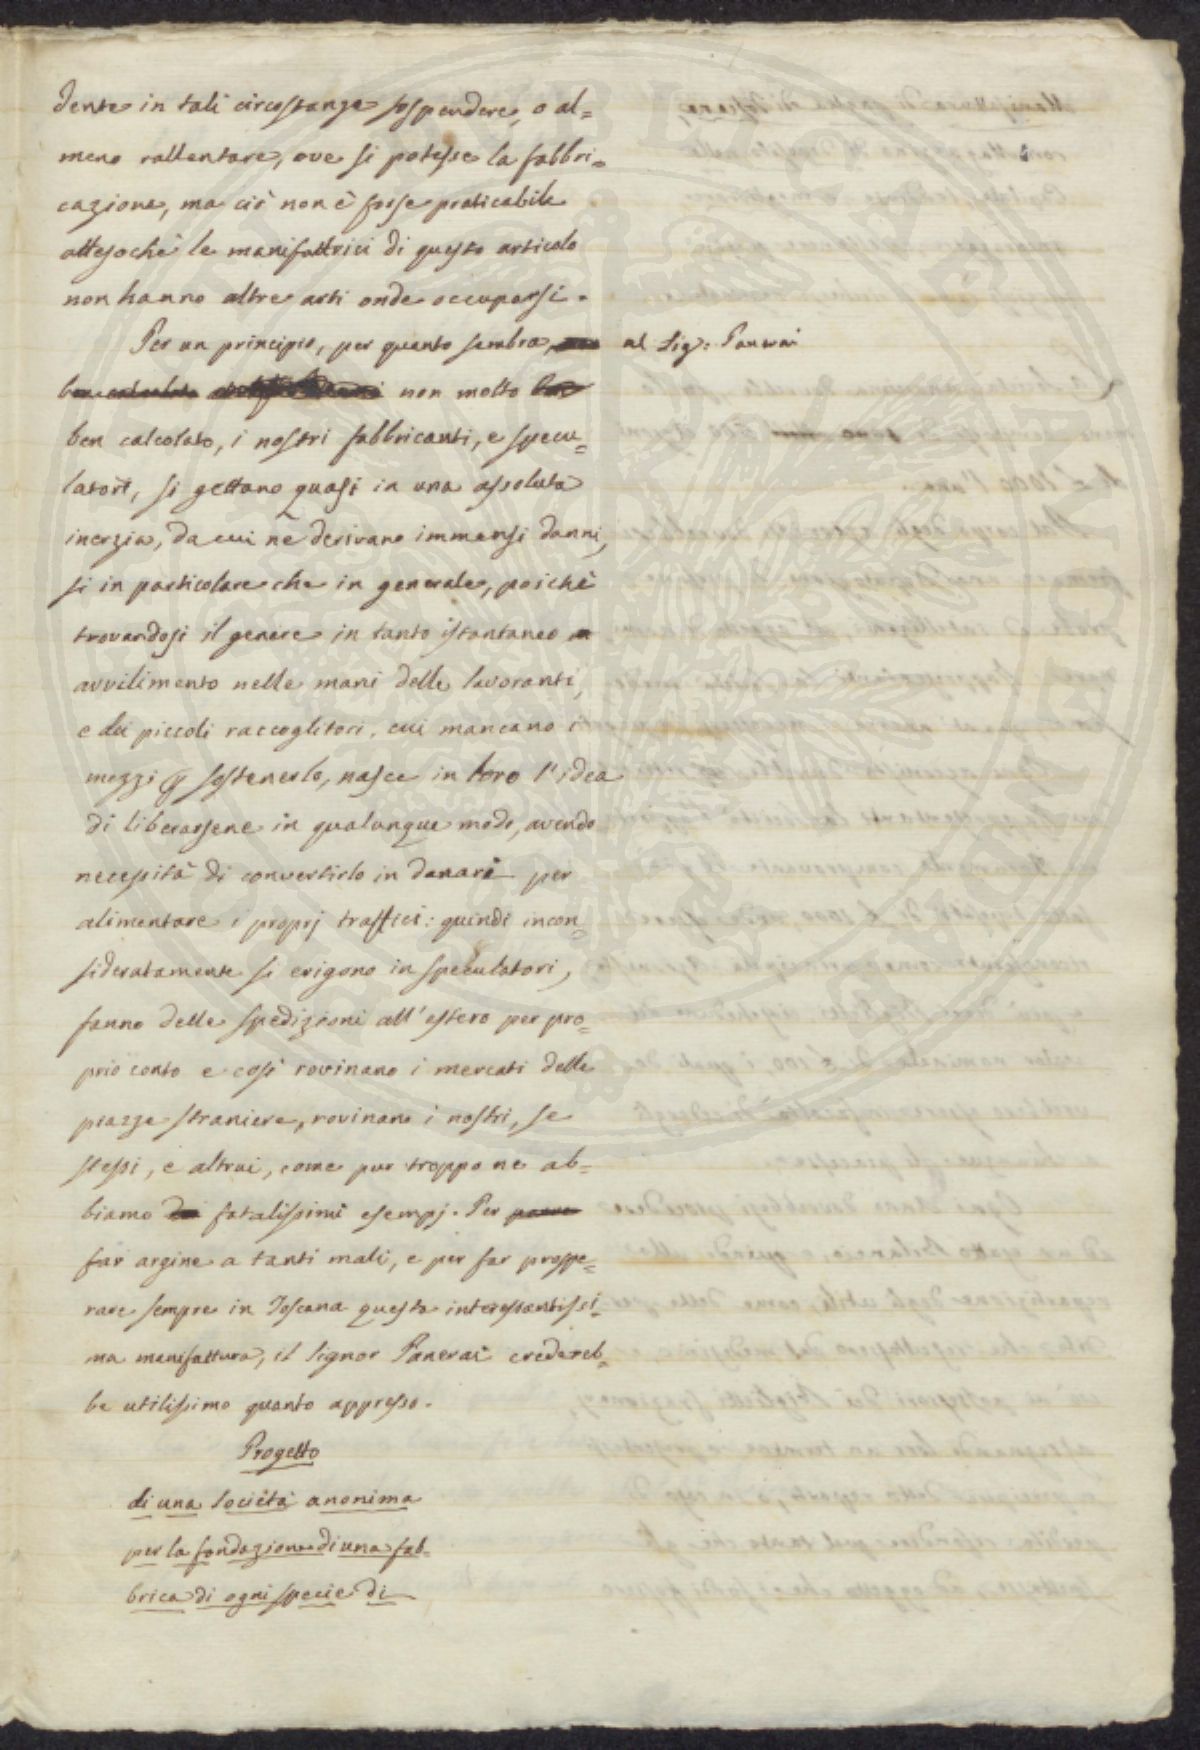 dente in tali circostanze sospendere, o al=
meno rallentare, ove si potesse la fabbri=
cazione, ma ciò non è forse praticabile
attesochè le manifattrici di questo articolo
non hanno altre arti onde occuparsi.
Per un principio, per quanto sembra, al Sig: Panerai
ben calcolato non molto ben
ben calcolato, i nostri fabbricanti, e specu=
latori, si gettano quasi in una assoluta
inerzia, da cui ne derivano immensi danni,
sì in particolare che in generale, poichè
trovandosi il genere in tanto istantaneo
avvilimento nelle mani delle lavoranti,
e dei piccoli raccoglitori, cui mancano i
mezzi p sostenerlo, nasce in loro l'idea
di liberarsene in qualunque modo, avendo
necessità di convertirlo in danari per
alimentare i proprj traffici: quindi incon=
sideratamente si erigono in speculatori,
fanno delle spedizioni all'estero per pro=
prio conto e così rovinano i mercati delle
piazze straniere, rovinano i nostri, se
stessi, e altrui, come pur troppo ne ab=
biamo dei fatalissimi esempj. Per
far argine a tanti mali, e per far prospe=
rare sempre in Toscana questa interessantissi=
ma manifattura, il Signor Panerai credereb=
be utilissimo quanto appresso.
Progetto
di una Società anonima
per la fondazione di una fab=
brica di ogni specie di